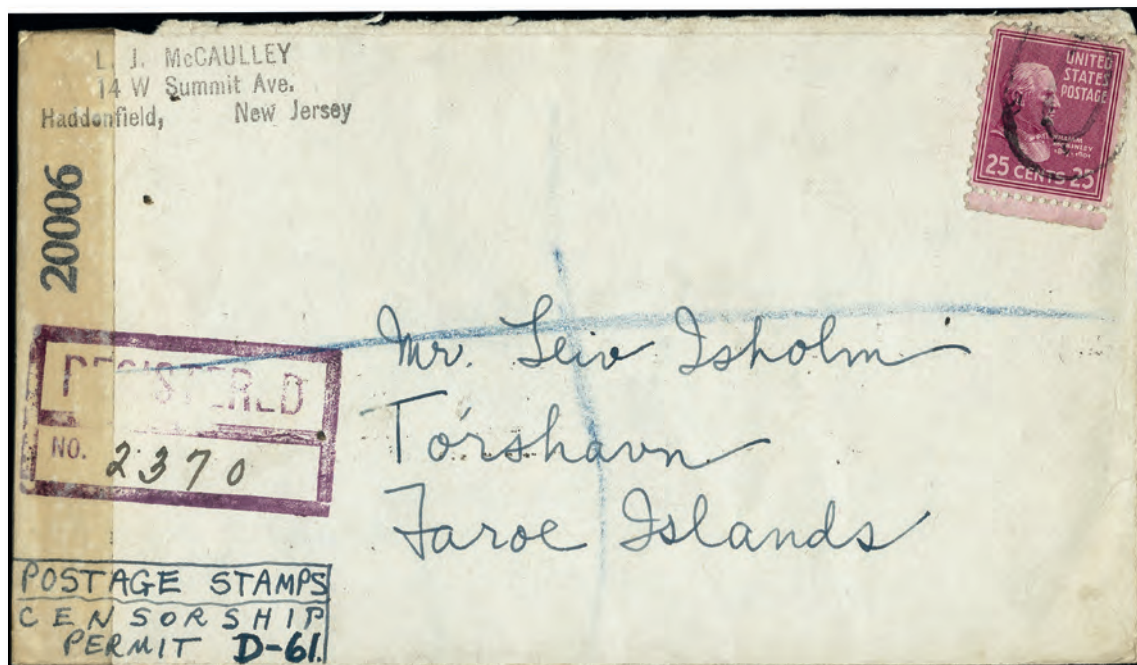 L. J. McCAULLEY
14 W Summit Ave.
Haddonfield, New Jersey
UNITED
STATES
POSTAGE
WILLIAM
McKINLEY
25 CENTS 25
20006
REGISTERED
NO. 2370
Mr. Leiv Isholm
Tórshavn
Faroe Islands
POSTAGE STAMPS
CENSORSHIP
PERMIT D-61.